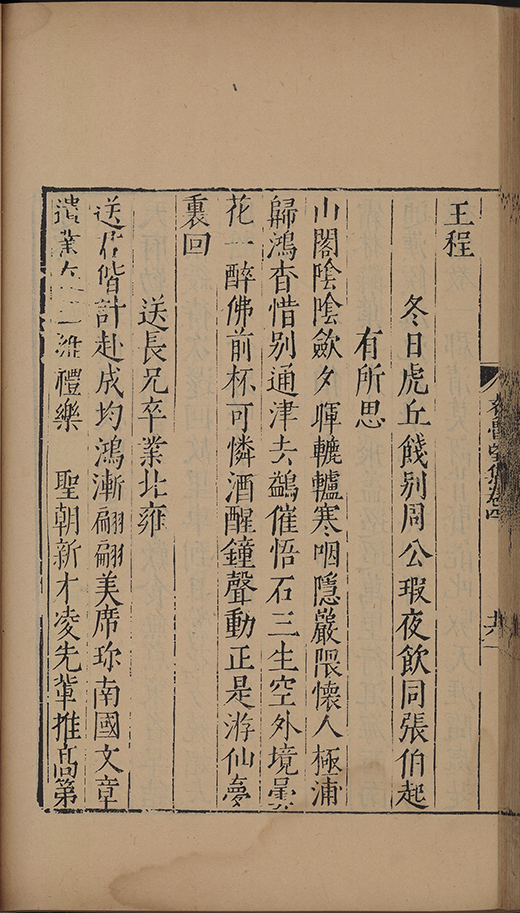 王程
冬日虎丘餞别周公瑕夜飲同張伯起
有所思
山閣陰陰歛夕暉轆轤寒咽隱巖隈懷人極浦
歸鴻杳惜别通津去鷁催悟石三生空外境曇
花一醉佛前杯可憐酒醒鐘聲動正是游仙夢
裏回
送長兄卒業北雍
送君偕計赴成均鴻漸翩翩美席珍南國文章
遺業 雍禮樂 聖朝新才凌先輩推高第
集卷四